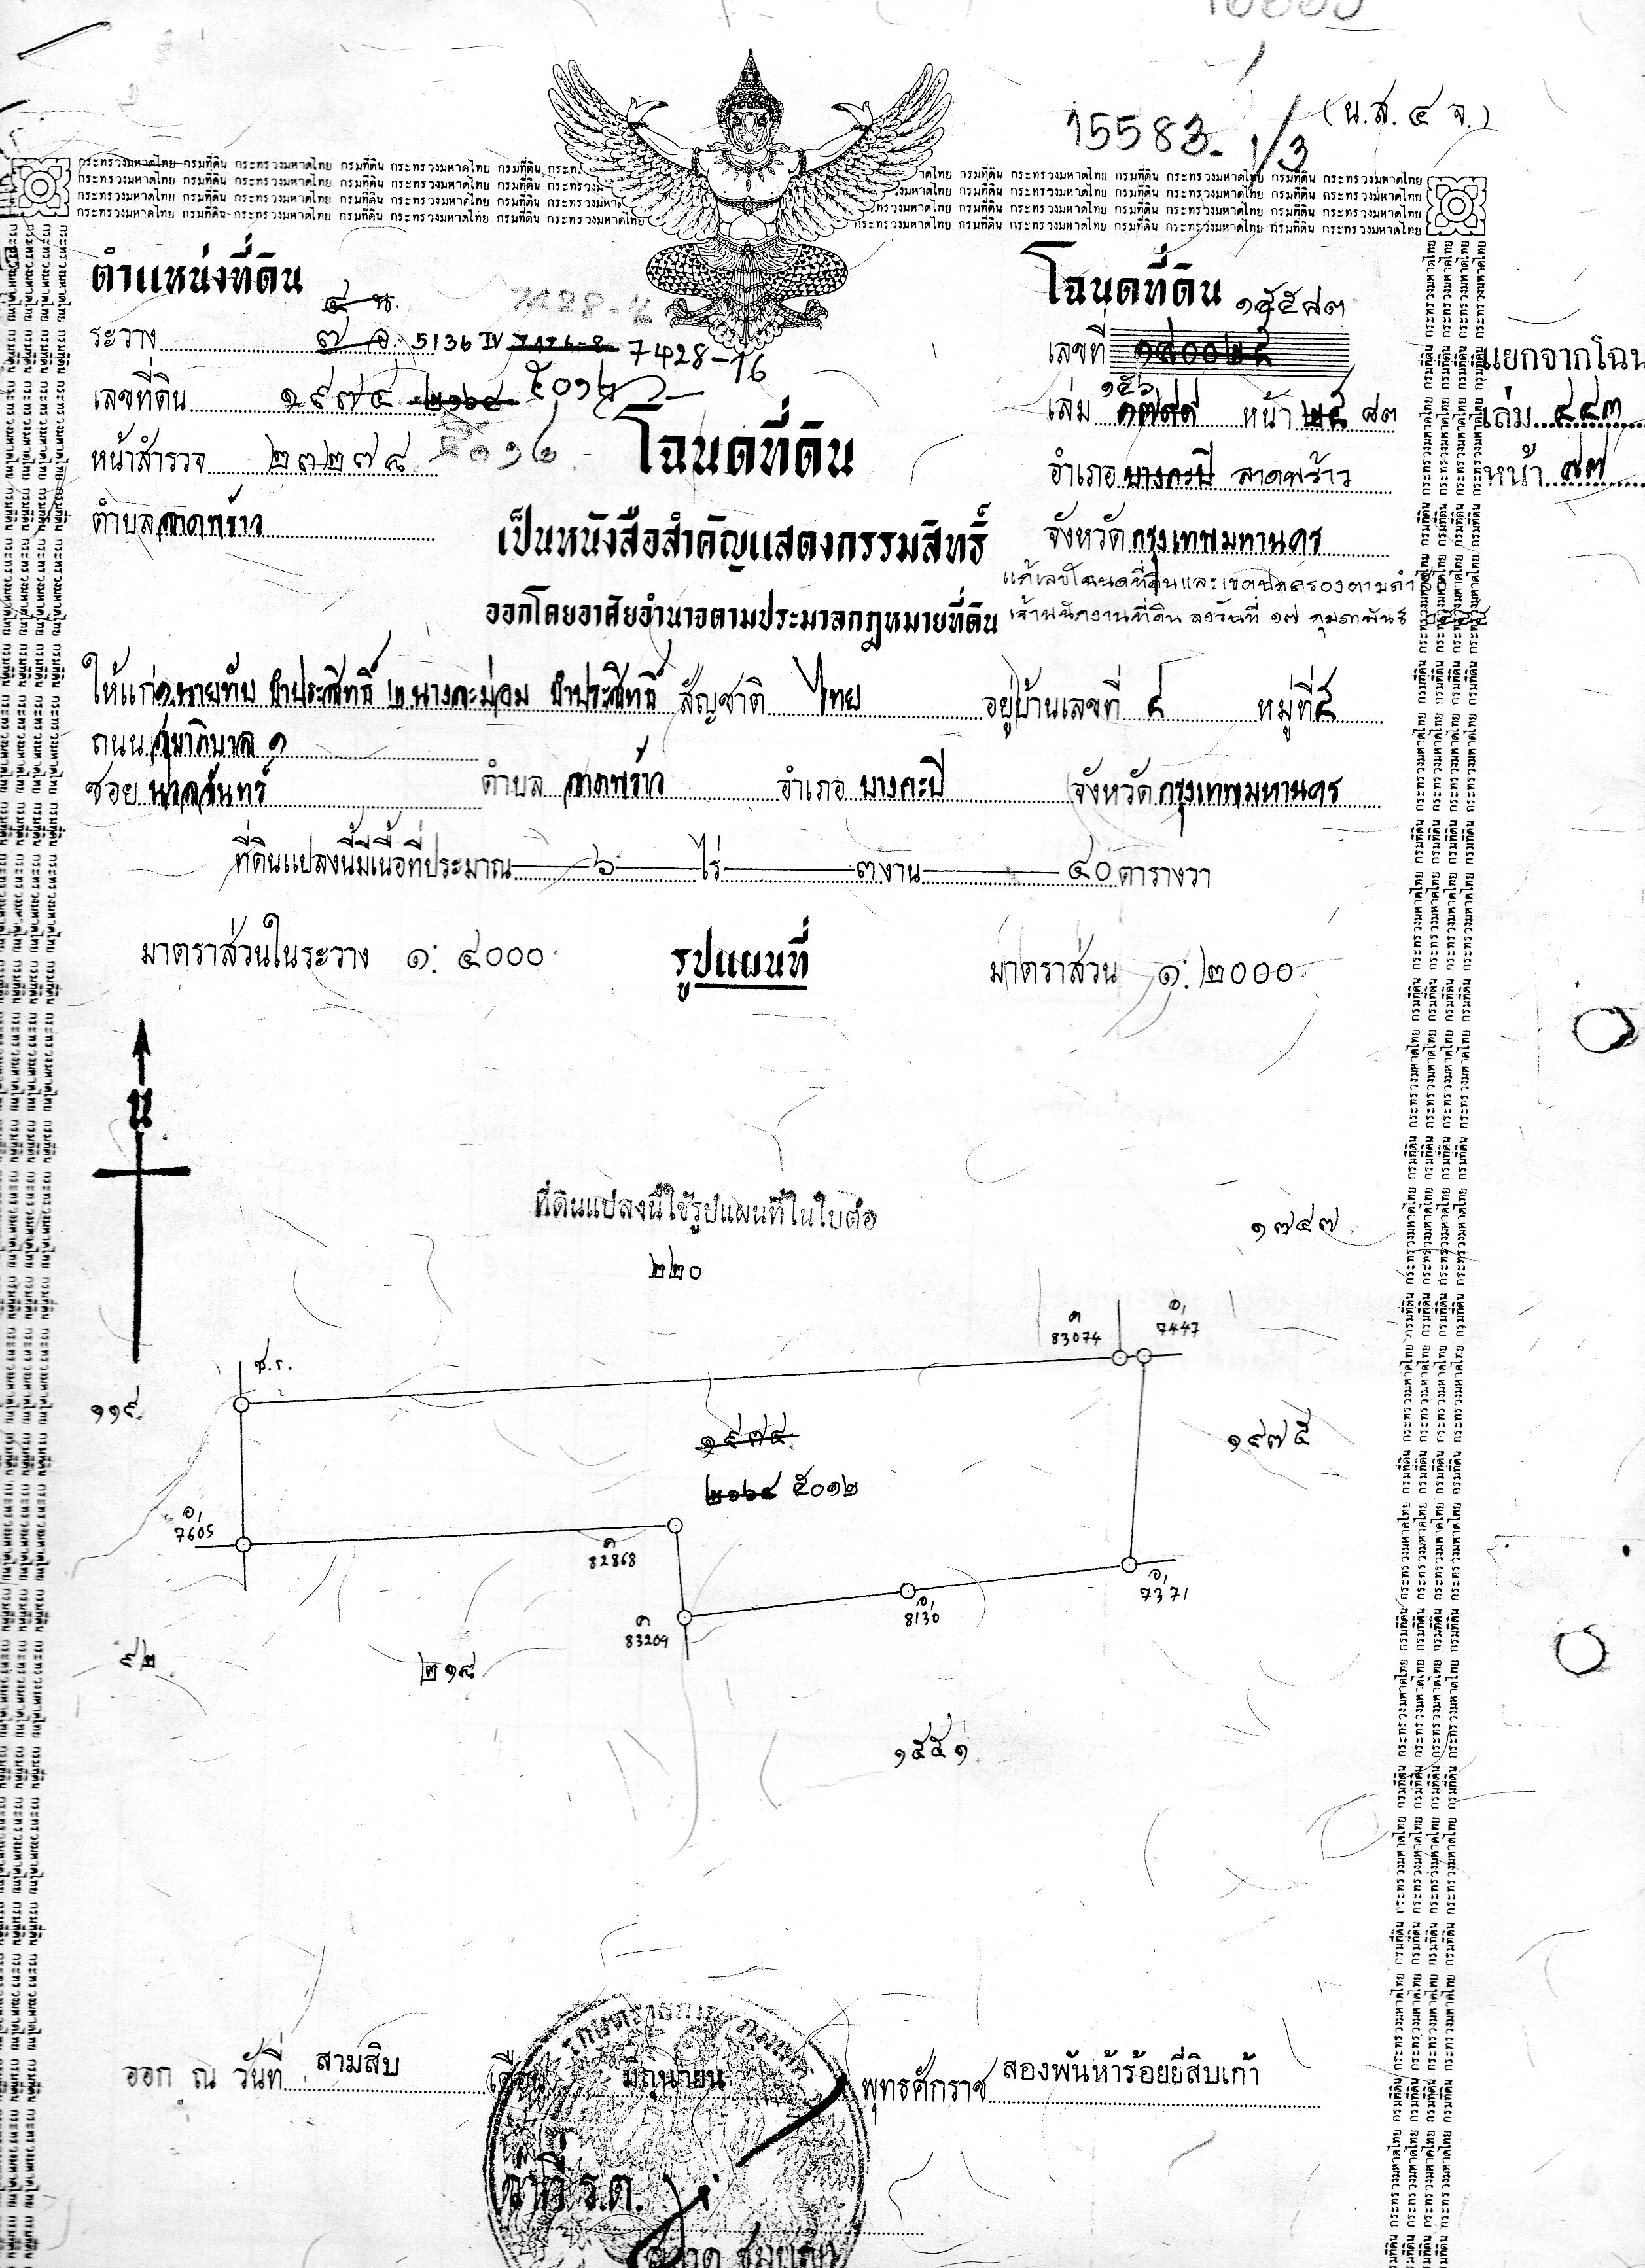 15583. 1/3
(น.ส. ๔ จ.)
กระทรวงมหาดไทย กรมที่ดิน กระทรวงมหาดไทย กรมที่ดิน กระทรวงมหาดไทย กรมที่ดิน
ตำแหน่งที่ดิน
๔ น.
ระวาง ๗ อ. 5136 IV 7426-2 7428-16
เลขที่ดิน ๑๙๗๔ ๒๑๖๔ ๕๐๑๒
หน้าสำรวจ ๒๓๒๗๘
ตำบล ลาดพร้าว
โฉนดที่ดิน
เป็นหนังสือสำคัญแสดงกรรมสิทธิ์
ออกโดยอาศัยอำนาจตามประมวลกฎหมายที่ดิน
โฉนดที่ดิน ๑๕๕๘๓
เลขที่
๑๕๖
เล่ม หน้า ๒๕ ๘๓
อำเภอ บางกะปิ ลาดพร้าว
จังหวัด กรุงเทพมหานคร
แก้เลขโฉนดที่ดินและเขตปกครองตามคำสั่ง
เจ้าพนักงานที่ดิน ลงวันที่ ๑๗ กุมภาพันธ์
แยกจากโฉน
เล่ม ๔๔๓
หน้า ๙๗
ให้แก่ ๑.นายทับ ขำประสิทธิ์ ๒ นางละม่อม ขำประสิทธิ์ สัญชาติ ไทย อยู่บ้านเลขที่ ๙ หมู่ที่ ๕
ถนน สุขาภิบาล ๑
ซอย นาคจันทร์ ตำบล ลาดพร้าว อำเภอ บางกะปิ จังหวัด กรุงเทพมหานคร
ที่ดินแปลงนี้มีเนื้อที่ประมาณ ๖ ไร่ ๓ งาน ๔๐ ตารางวา
มาตราส่วนในระวาง ๑: ๔๐๐๐
รูปแผนที่
มาตราส่วน ๑: ๒๐๐๐
น
ที่ดินแปลงนี้ใช้รูปแผนที่ในใบต่อ
๒๒๐
๑๗๔๗
ช.ร.
ค 83074
อ, 7447
๑๑๙
๑๙๗๔
๑๙๗๕
๒๑๖๔ ๕๐๑๒
อ, 7605
ค 82868
อ, 7371
อ, 8130
ค 83209
๙๒
๒๑๘
๑๕๕๑
ออก ณ วันที่ สามสิบ เดือน มิถุนายน พุทธศักราช สองพันห้าร้อยยี่สิบเก้า
ว่าที่ ร.ต.